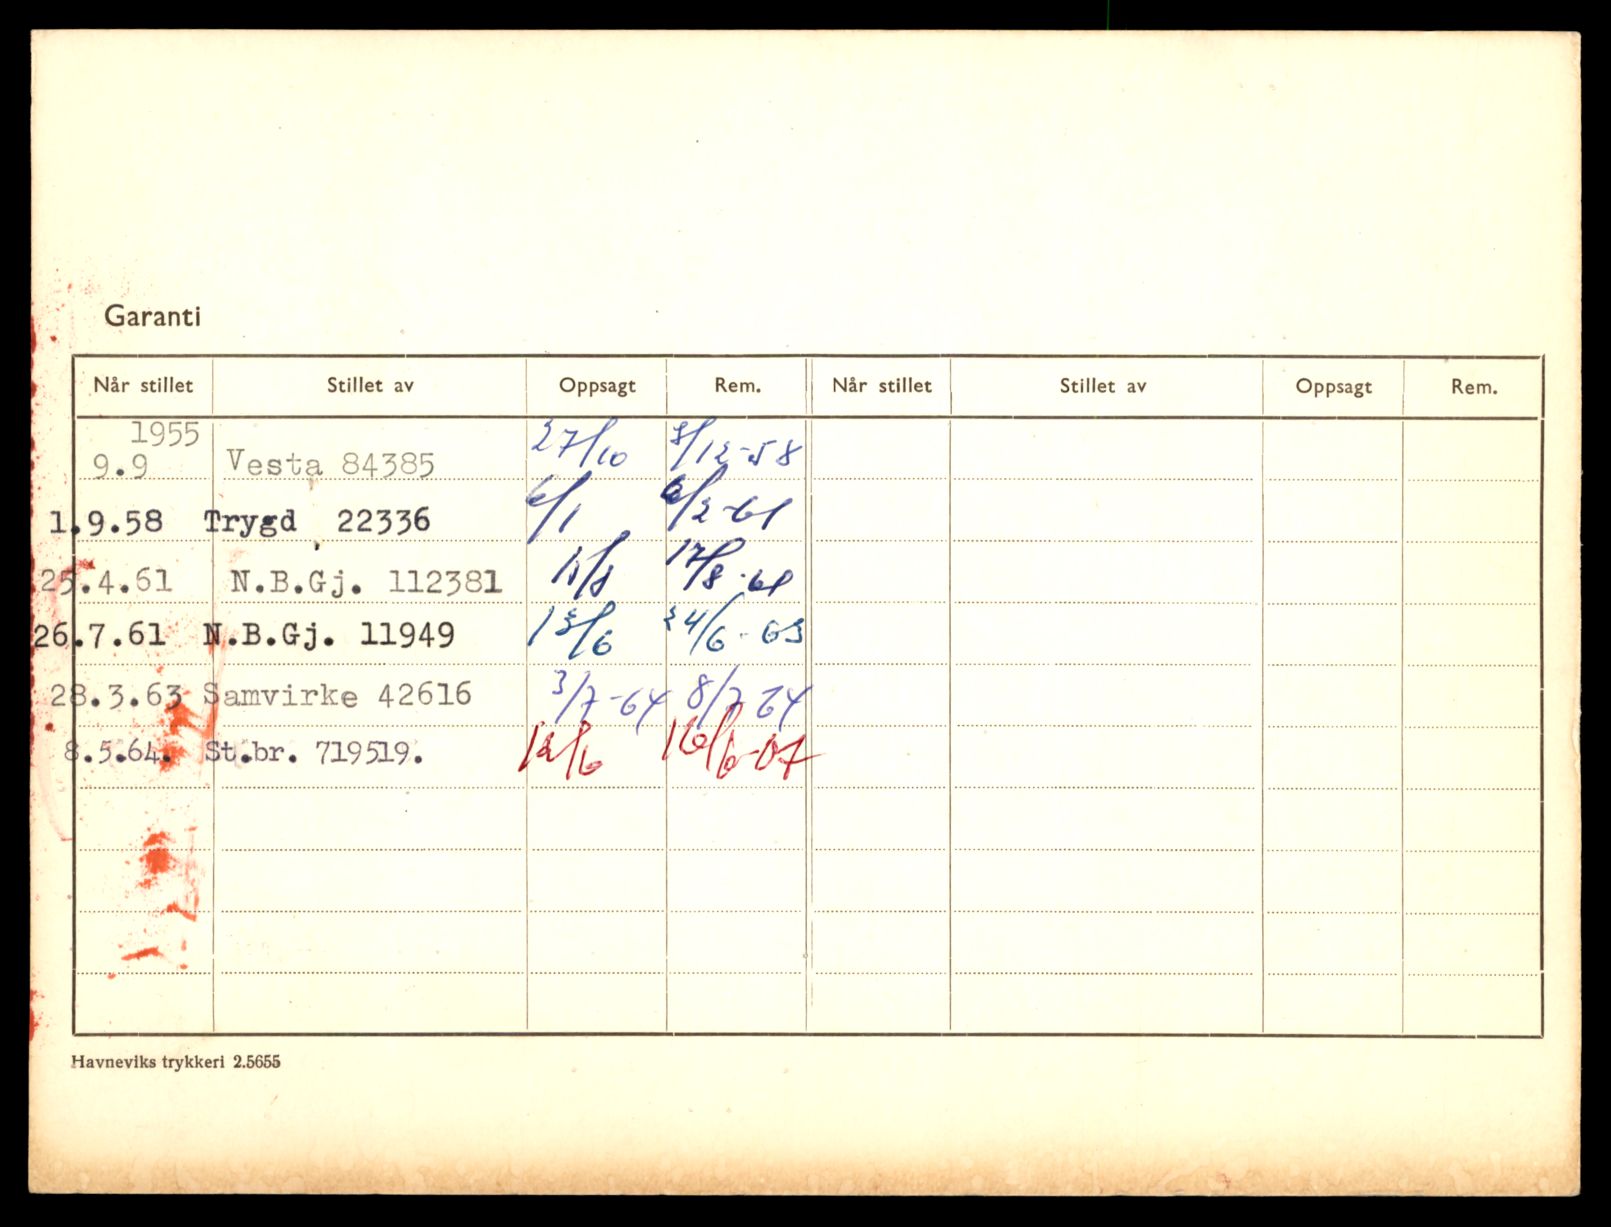 Garanti
Når stillet Stillet av Oppsagt Rem. Når stillet Stillet av Oppsagt Rem.
1955
9.9 Vesta 84385 27/10 3/12-58
1.9.58 Trygd 22336 6/1 6/2-61
25.4.61 N.B.Gj. 112381 17/8-61
26.7.61 N.B.Gj. 11949 13/6 24/6-63
28.3.63 Samvirke 42616 3/7-64 8/7-64
8.5.64. St.br. 719519. 12/6 16/6-67
Havneviks trykkeri 2.5655